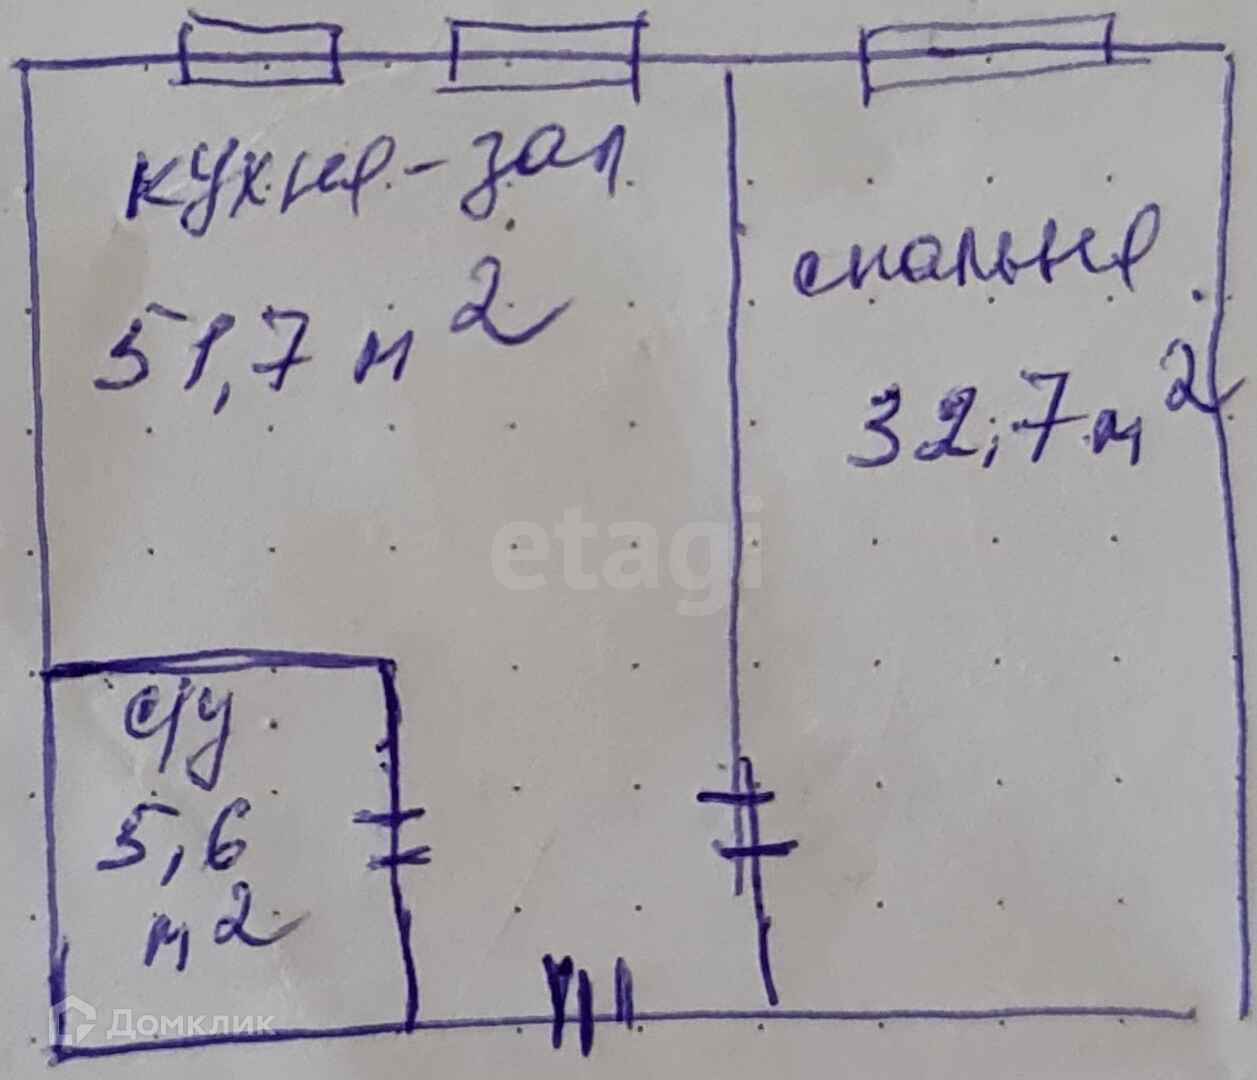 кухня-зал
51,7 м²
спальня
32,7 м²
etagi
с/у
5,6
м²
Домклик